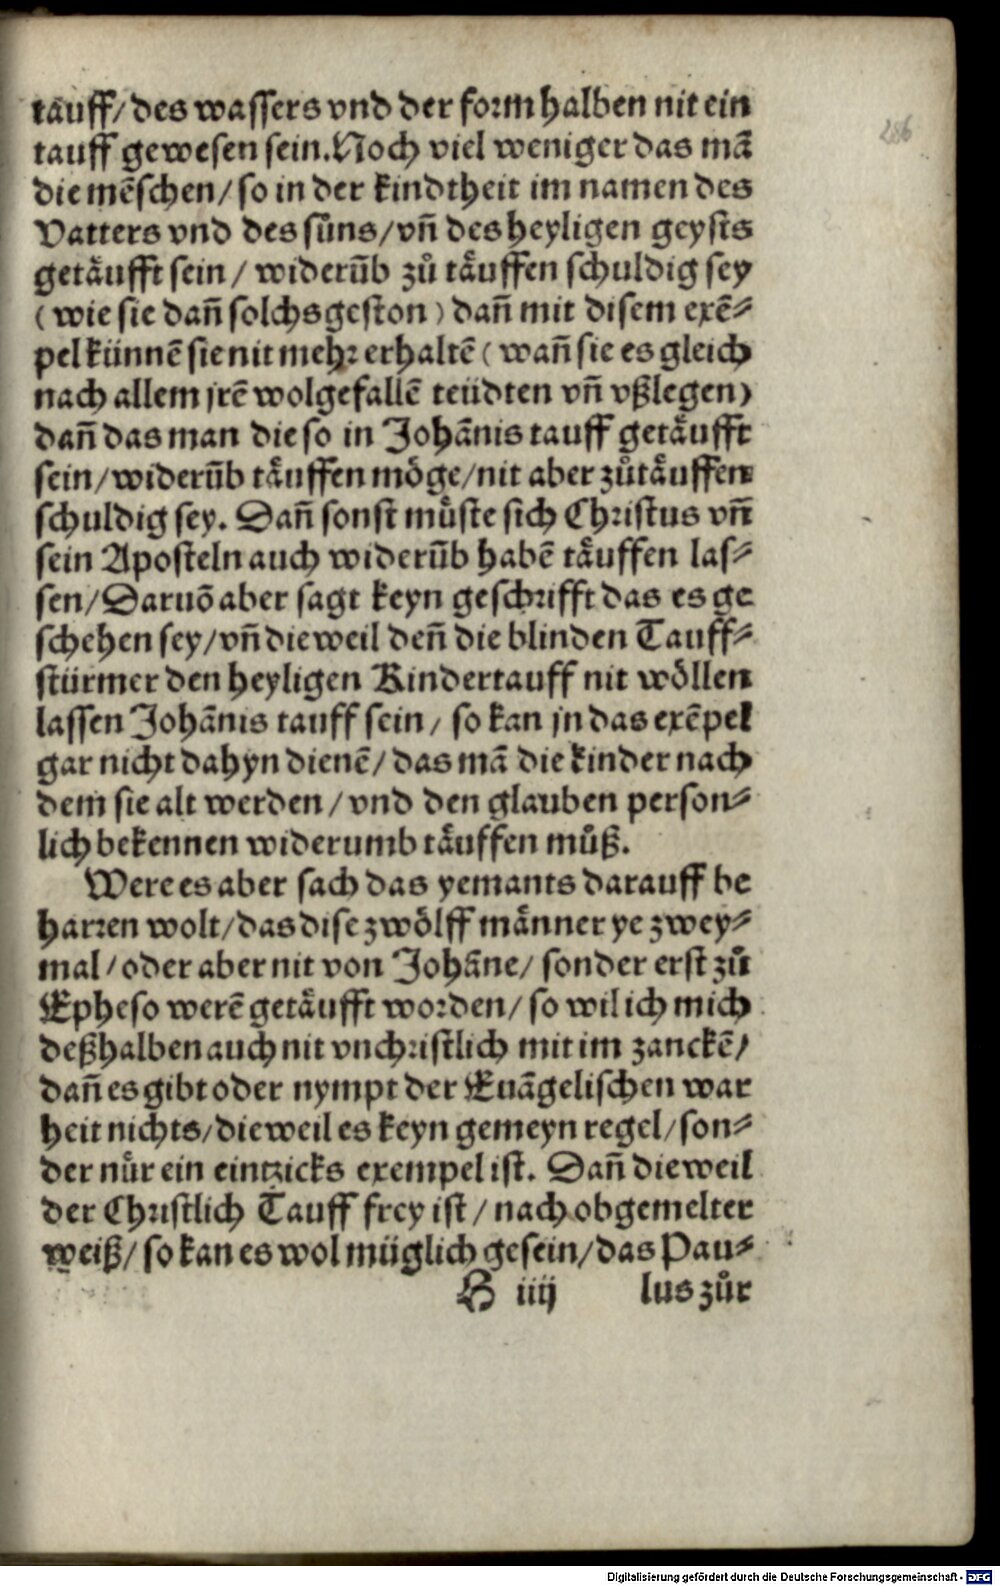 tauff/ des wassers vnd der form halben nit ein
tauff gewesen sein. Noch viel weniger das mā
die mēschen/ so in der kindtheit im namen des
Vatters vnd des sůns/ vn̄ des heyligen geysts
getäufft sein/ widerūb zů täuffen schuldig sey
(wie sie dan̄ solchs geston) dan̄ mit disem exē⸗
pel künnē sie nit mehr erhaltē (wan̄ sie es gleich
nach allem jrē wolgefallē teüdten vn̄ vßlegen)
dan̄ das man die so in Johānis tauff getäufft
sein/ widerūb täuffen möge/ nit aber zůtäuffen
schuldig sey. Dan̄ sonst můste sich Christus vn̄
sein Aposteln auch widerūb habē täuffen las⸗
sen/ Daruō aber sagt keyn geschrifft das es ge
schehen sey/ vn̄ die weil den̄ die blinden Tauff⸗
stürmer den heyligen Kindertauff nit wöllen
lassen Johānis tauff sein/ so kan jn das exēpel
gar nicht dahyn dienē/ das mā die kinder nach
dem sie alt werden/ vnd den glauben person⸗
lich bekennen widerumb täuffen můß.
Were es aber sach das yemants darauff be
harren wolt/ das dise zwölff männer ye zwey⸗
mal/ oder aber nit von Johāne/ sonder erst zů
Epheso werē getäufft worden/ so wil ich mich
deßhalben auch nit vnchristlich mit im zanckē/
dan̄ es gibt oder nympt der Euāgelischen war
heit nichts/ die weil es keyn gemeyn regel/ son⸗
der nůr ein eintzicks exempel ist. Dan̄ die weil
der Christlich Tauff frey ist/ nach obgemelter
weiß/ so kan es wol müglich gesein/ das Pau⸗
H iiij lus zůr
286
Digitalisierung gefördert durch die Deutsche Forschungsgemeinschaft - DFG